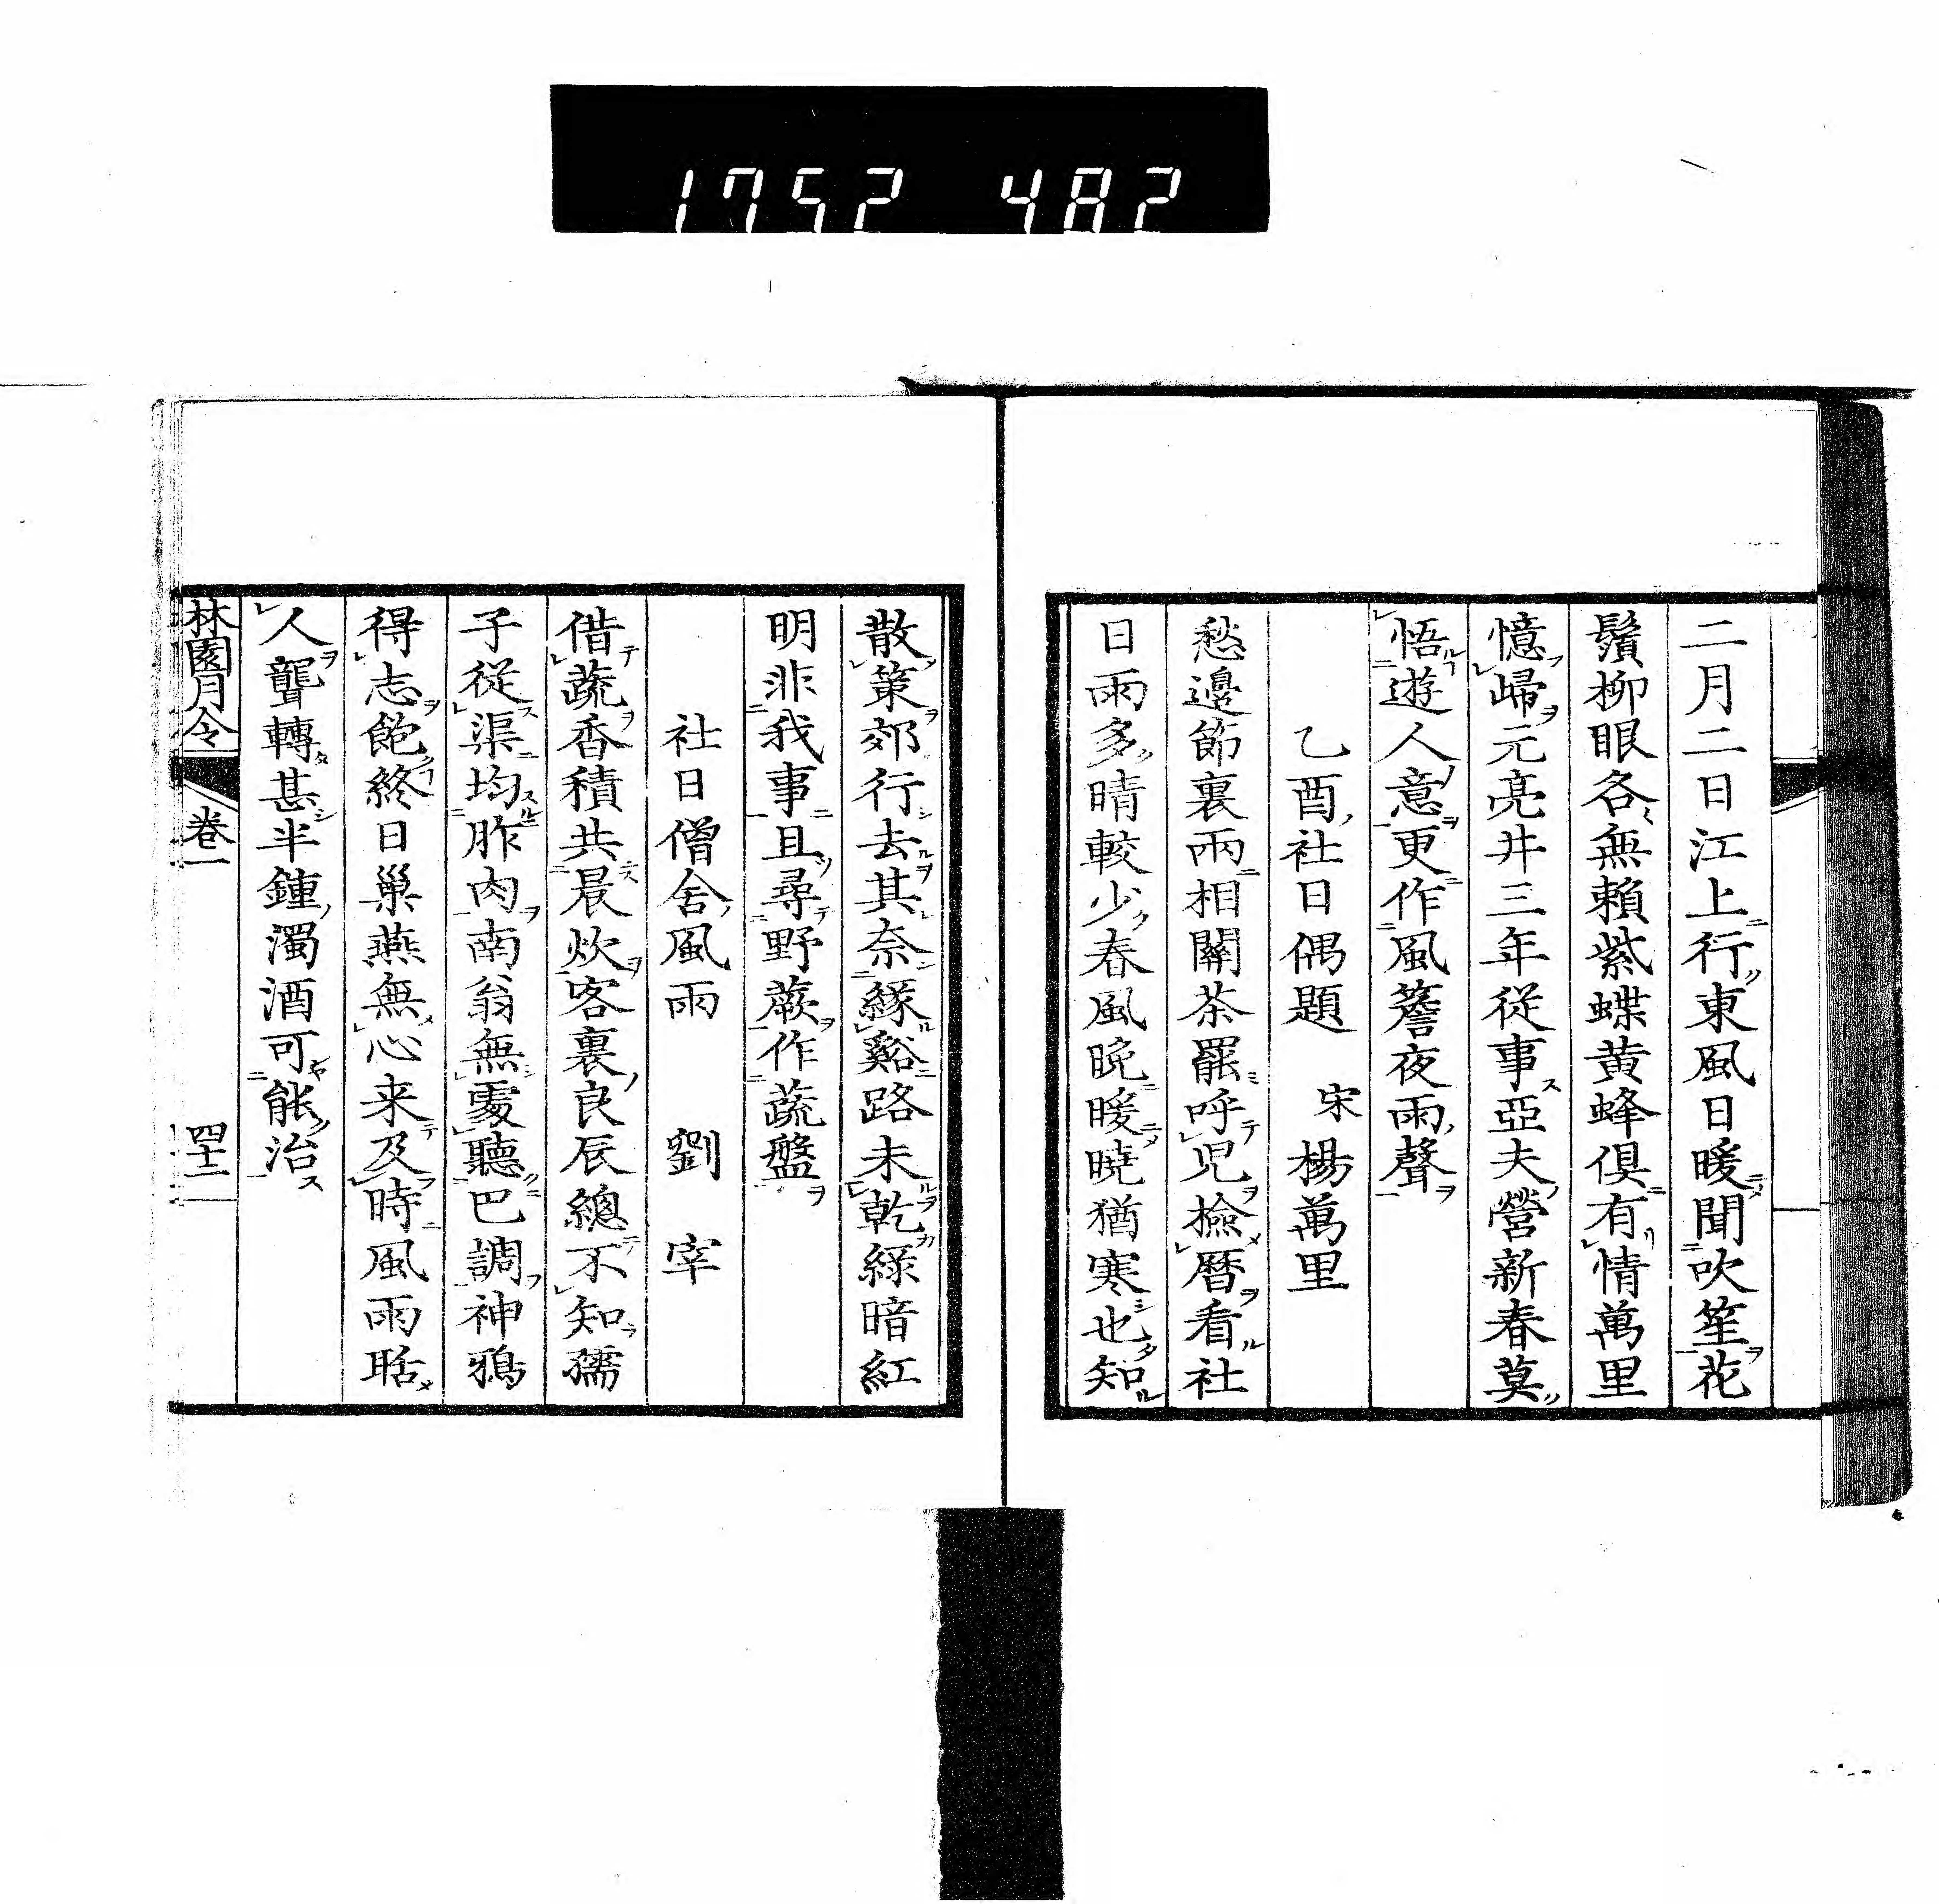 1752 482
二月二日江上行東風日暖聞吹笙花
鬚柳眼各無賴紫蝶黄蜂俱有情萬里
憶歸元亮井三年從事亞夫營新春莫
悟遊人意更作風簷夜雨聲
乙酉社日偶題 宋楊萬里
愁邊節裏兩相關茶罷呼児撿曆看社
日雨多晴較少春風晩暖曉猶寒也知
散策郊行去其奈緣谿路未乾綠暗紅
明非我事且尋野蕨作蔬盤
社日僧舍風雨 劉宰
借蔬香積共晨炊客裏良辰總不知孺
子從渠均胙肉南翁無處聽巴調神鴉
得志飽終日巢燕無心来及時風雨聒
人聾轉甚半鍾濁酒可能治
林園月令 卷一 四十二